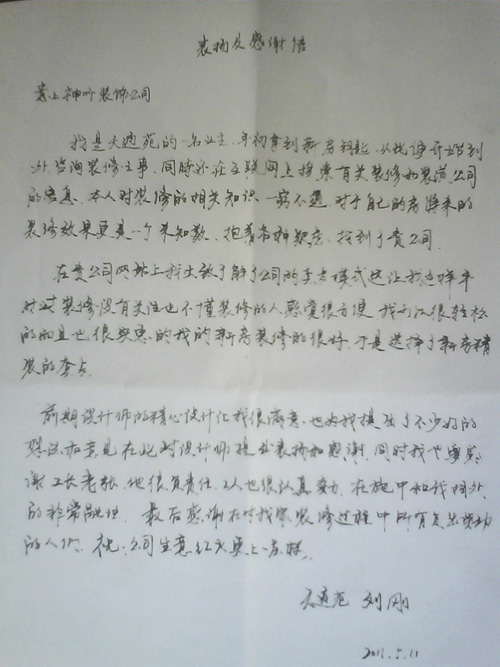 表扬及感谢信
业神州装饰公司
我是大道苑的一名业主,年初拿到新房钥匙,从此便开始到
外咨询装修之事,同时还在互联网上搜索有关装修和装潢公司
的信息,本人对装修的相关知识一窍不通,对于自己的房将来的
装修效果更是一个未知数,抱着各种疑虑,找到了贵公司.
在贵公司网站上我大致了解了公司的模式这让我这样平
时对装修没有关注也不懂装修的人感觉很方便,我可以很轻松
的而且也很实惠的我的新房装修的很好,于是选择了新房精
装的套点.
前期设计师的精心设计让我很满意,也为我提出了不少好的
想法和意见在此对设计师提出表扬和感谢,同时我也要感
谢工长老张,他很负责任,工人也很认真努力,在施中和我相处
的非常融洽.最后感谢在对我家装修过程中所有付出劳动
的人们,祝:公司生意红火更上一层楼.
刘刚
5.11